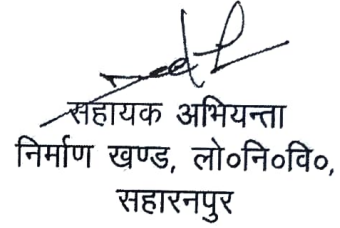 सहायक अभियन्ता
निर्माण खण्ड, लो०नि०वि०,
सहारनपुर